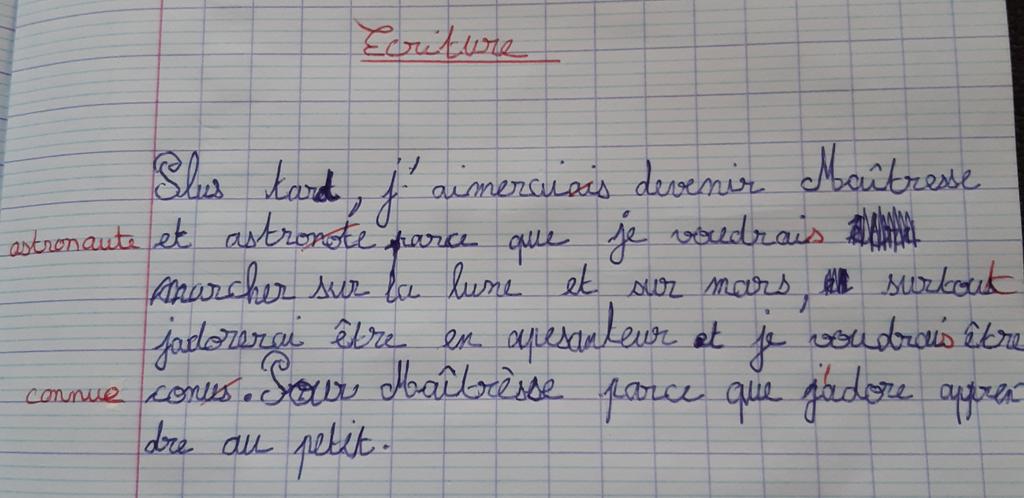 Ecriture
Plus tard, j'aimeraiais devenir Maîtresse
astronaute et astronote parce que je voudrais
marcher sur la lune et sur mars, surtout
jadorerai être en apesanteur et je voudrais être
connue conus. Pour Maîtrèsse parce que j'adore appren
dre au petit.